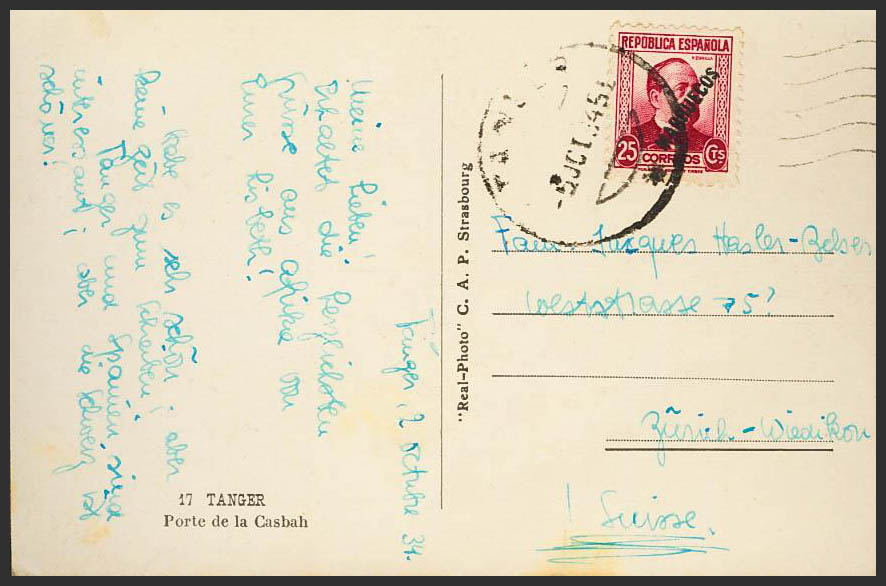 17 TANGER
Porte de la Casbah
Tanger, 2 octubre 34.
Meine Lieben!
Erhaltet die herzlichsten
Grüsse aus Afrika von
Eurer Lisbeth!
Habe es sehr schön, aber
keine Zeit zum Schreiben!
Tanger und Spanien sind
interessant, aber die Schweiz ist
schöner!
"Real-Photo" C. A. P. Strasbourg
REPÚBLICA ESPAÑOLA
MARRUECOS
25 CORREOS Cts
TANGER
Fam. Jacques Hasler-Belser
Weststrasse 75!
Zürich-Wiedikon
Suisse.